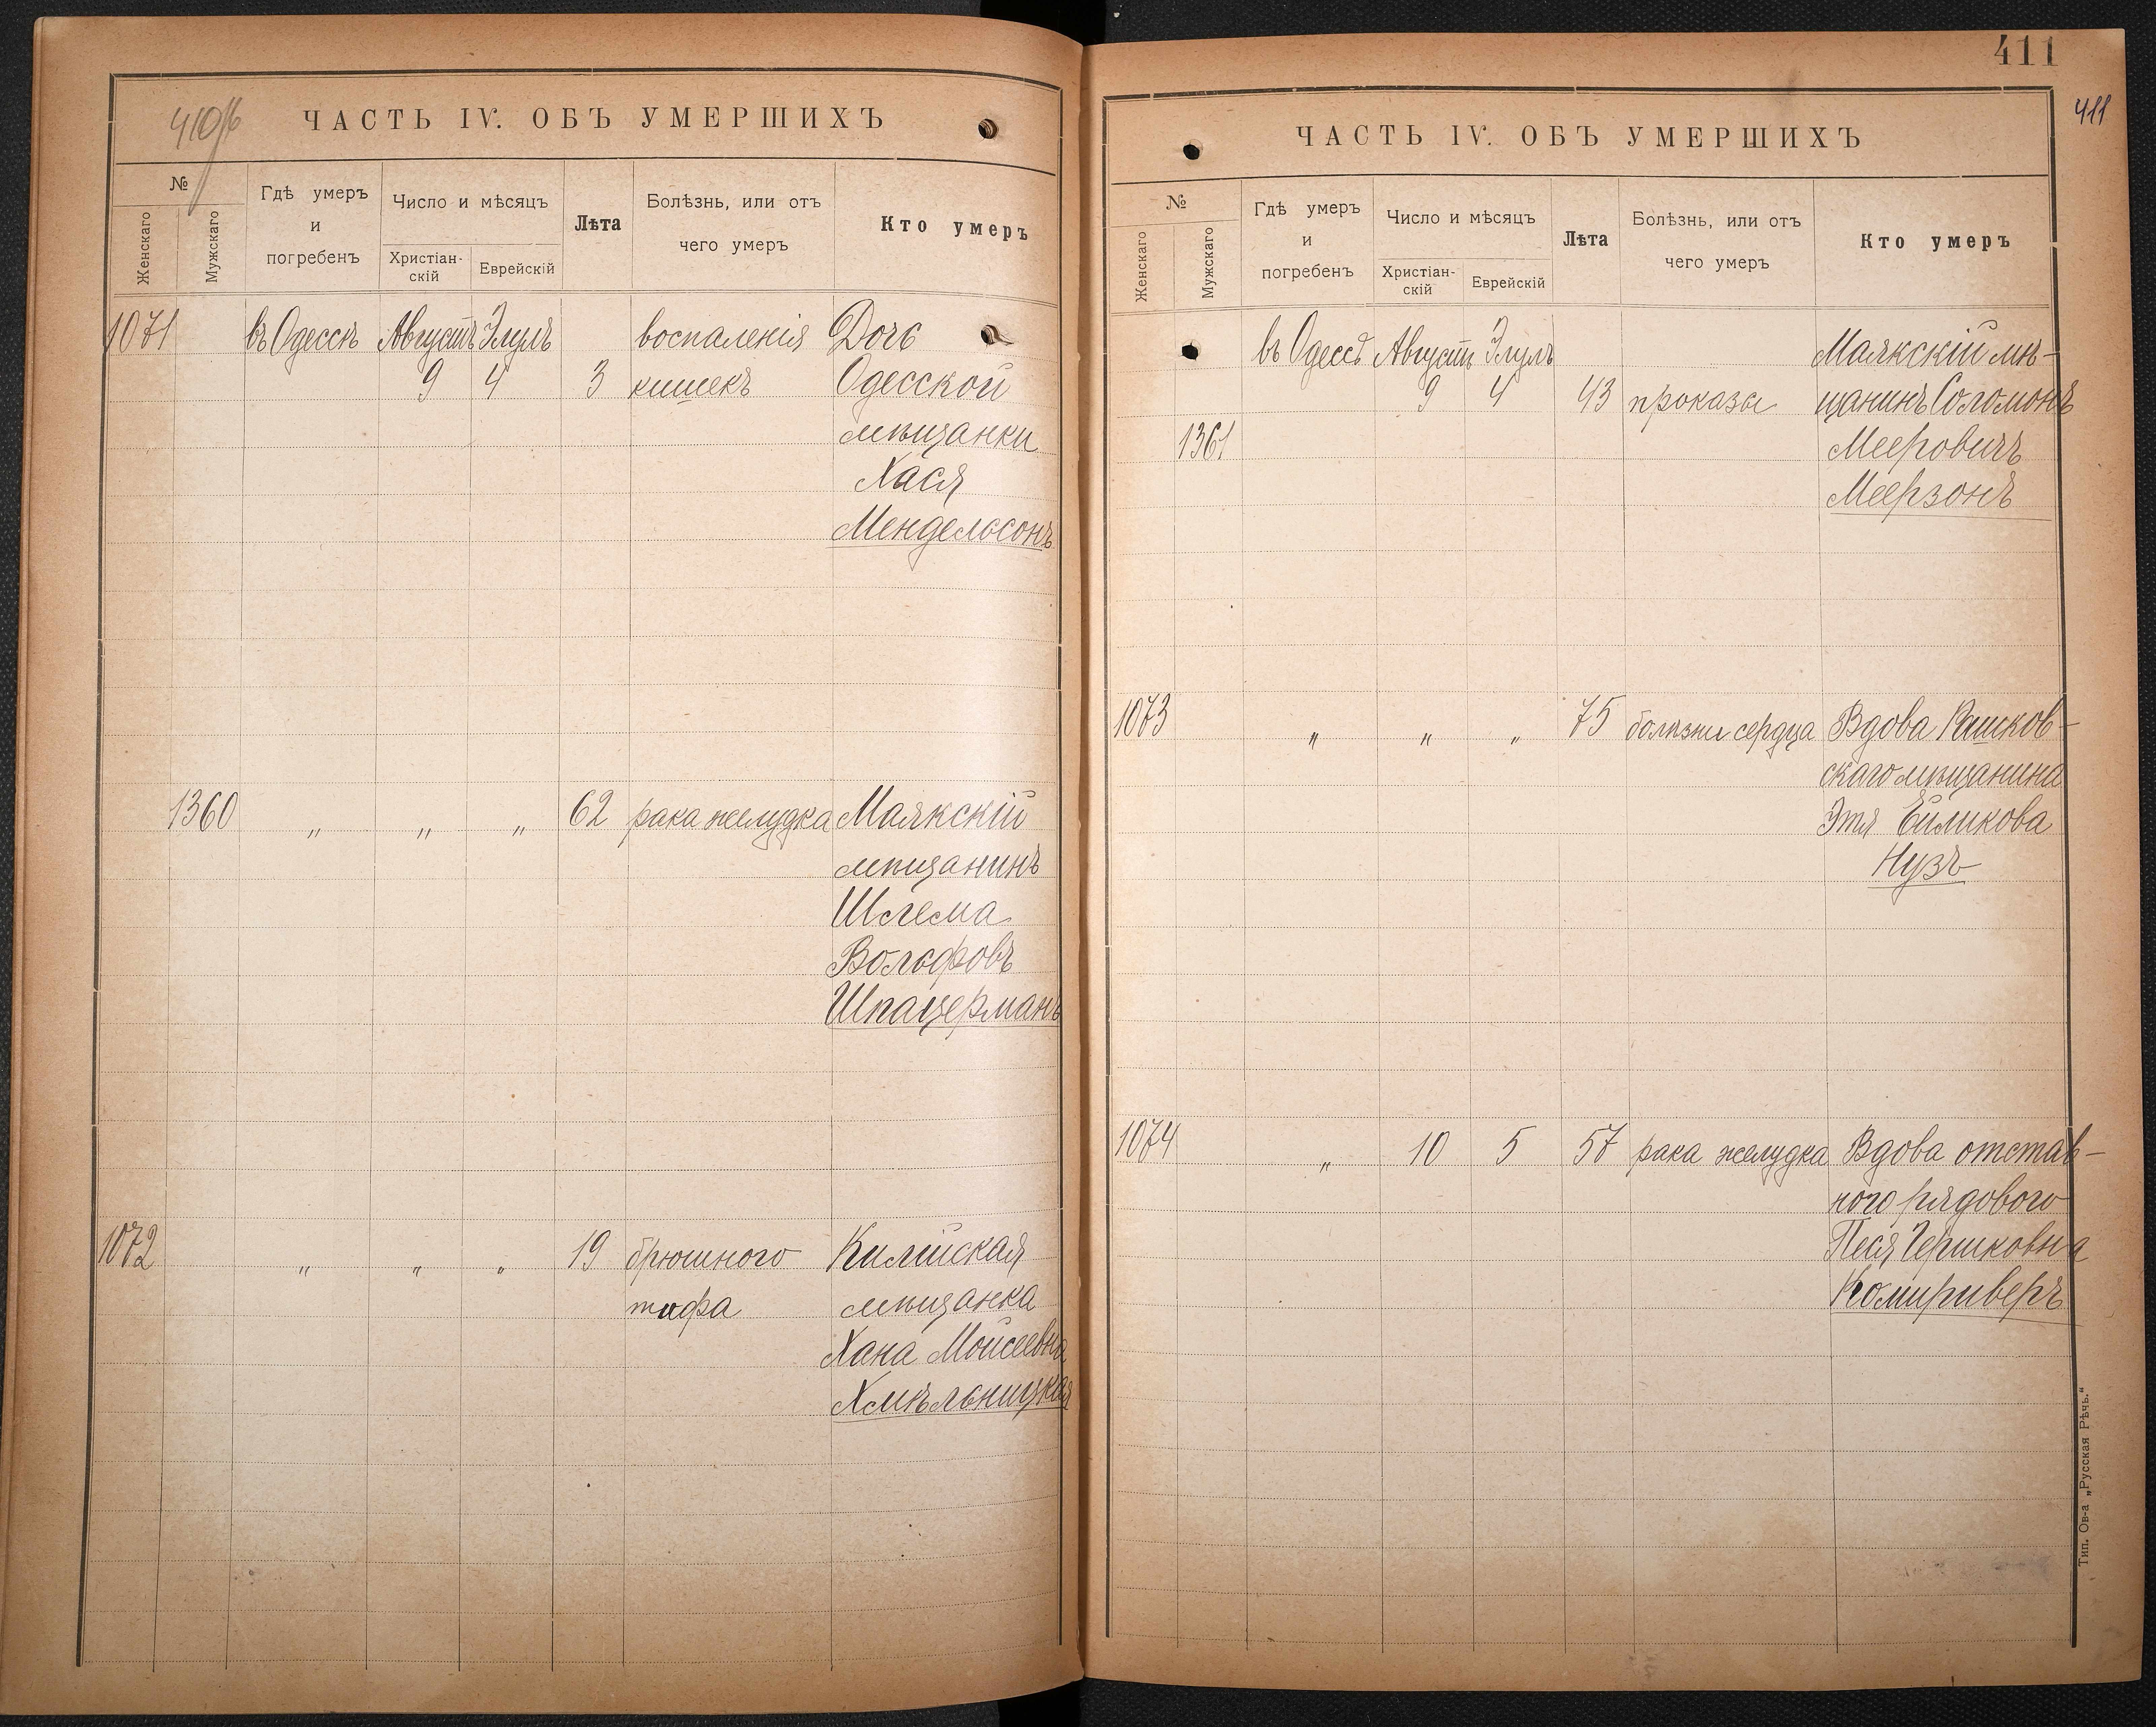 410об
ЧАСТЬ IV. ОБЪ УМЕРШИХЪ
№
Женскаго
Мужскаго
Гдѣ умеръ
и
погребенъ
Число и мѣсяцъ
Христіан-
скій
Еврейскій
Лѣта
Болѣзнь, или отъ
чего умеръ
Кто умеръ
1071 въ Одессѣ Августъ Элулъ воспаленія Дочь
9 4 3 кишекъ Одесской
мѣщанки
Хася
Мендельсонъ
1360 „ „ „ 62 рака желудка Маякскій
мѣщанинъ
Шлема
Вольфовъ
Шпацерманъ
1072 „ „ „ 19 брюшного Килійская
тифа мѣщанка
Хана Моисеевна
Хмѣльницкая
411
411
ЧАСТЬ IV. ОБЪ УМЕРШИХЪ
№
Женскаго
Мужскаго
Гдѣ умеръ
и
погребенъ
Число и мѣсяцъ
Христіан-
скій
Еврейскій
Лѣта
Болѣзнь, или отъ
чего умеръ
Кто умеръ
въ Одессѣ Августъ Элулъ Маякскій мѣ-
9 4 43 проказы щанинъ Соломонъ
1361 Мееровичъ
Меерзонъ
1073 „ „ „ 75 болѣзни сердца Вдова Рашков-
скаго мѣщанина
Этя Ейликова
Нузъ
1074 „ 10 5 57 рака желудка Вдова отстав-
ного рядового
Песя Гершковна
Комириверъ
Тип. Ов-а „Русская Рѣчь.“